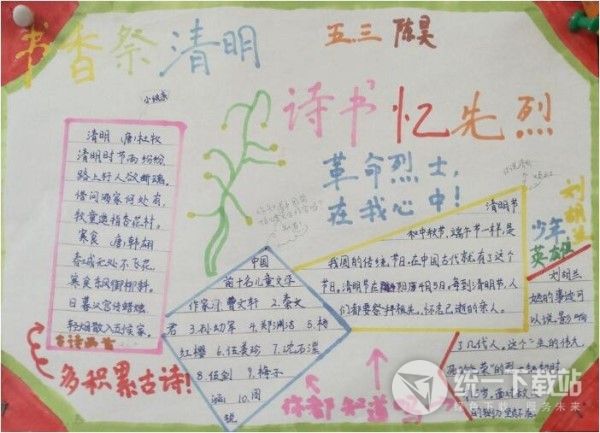 书香祭清明
五.三 陈昊
诗书忆先烈
革命烈士,
在我心中!
清明 唐:杜牧
清明时节雨纷纷
路上行人欲断魂。
借问酒家何处有,
牧童遥指杏花村。
寒食 唐:韩翃
春城无处不飞花
寒食东风御柳斜。
日暮汉宫传蜡烛
轻烟散入五侯家。
古诗两首
多积累古诗!
中国
前十名儿童文学
作家:1.曹文轩 2.秦文
君 3.孙幼军 4.郑渊洁 5.杨
红樱 6.伍美珍 7.沈石溪
8.伍剑 9.梅子
涵 10.周
锐
你都知道吗
清明节
和中秋节、端午节一样,是
我国的传统节日。在中国古代就有了这个
节日。清明节在4月5日,每到清明节,人
们都要祭拜祖先,怀念已逝的亲人。
少年
英雄
刘胡兰
刘胡兰
她的事迹可
以说影响
了几代人。这个
统一下载站